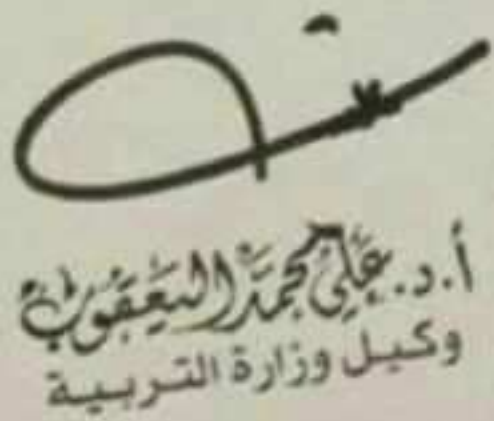 أ.د. علي محمد اليعقوب
وكيل وزارة التربية